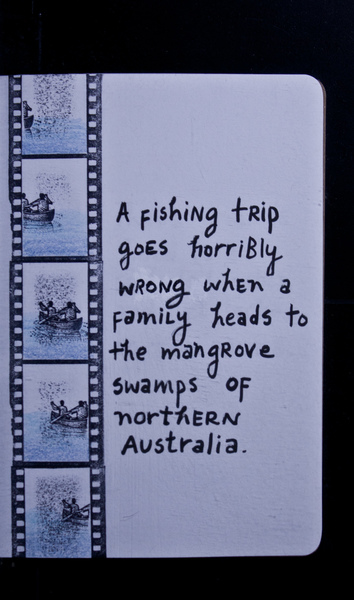 A fishing tRip
goES horribly
wRong whEn a
family heads to
the mangrove
swamps OF
northERN
Australia.